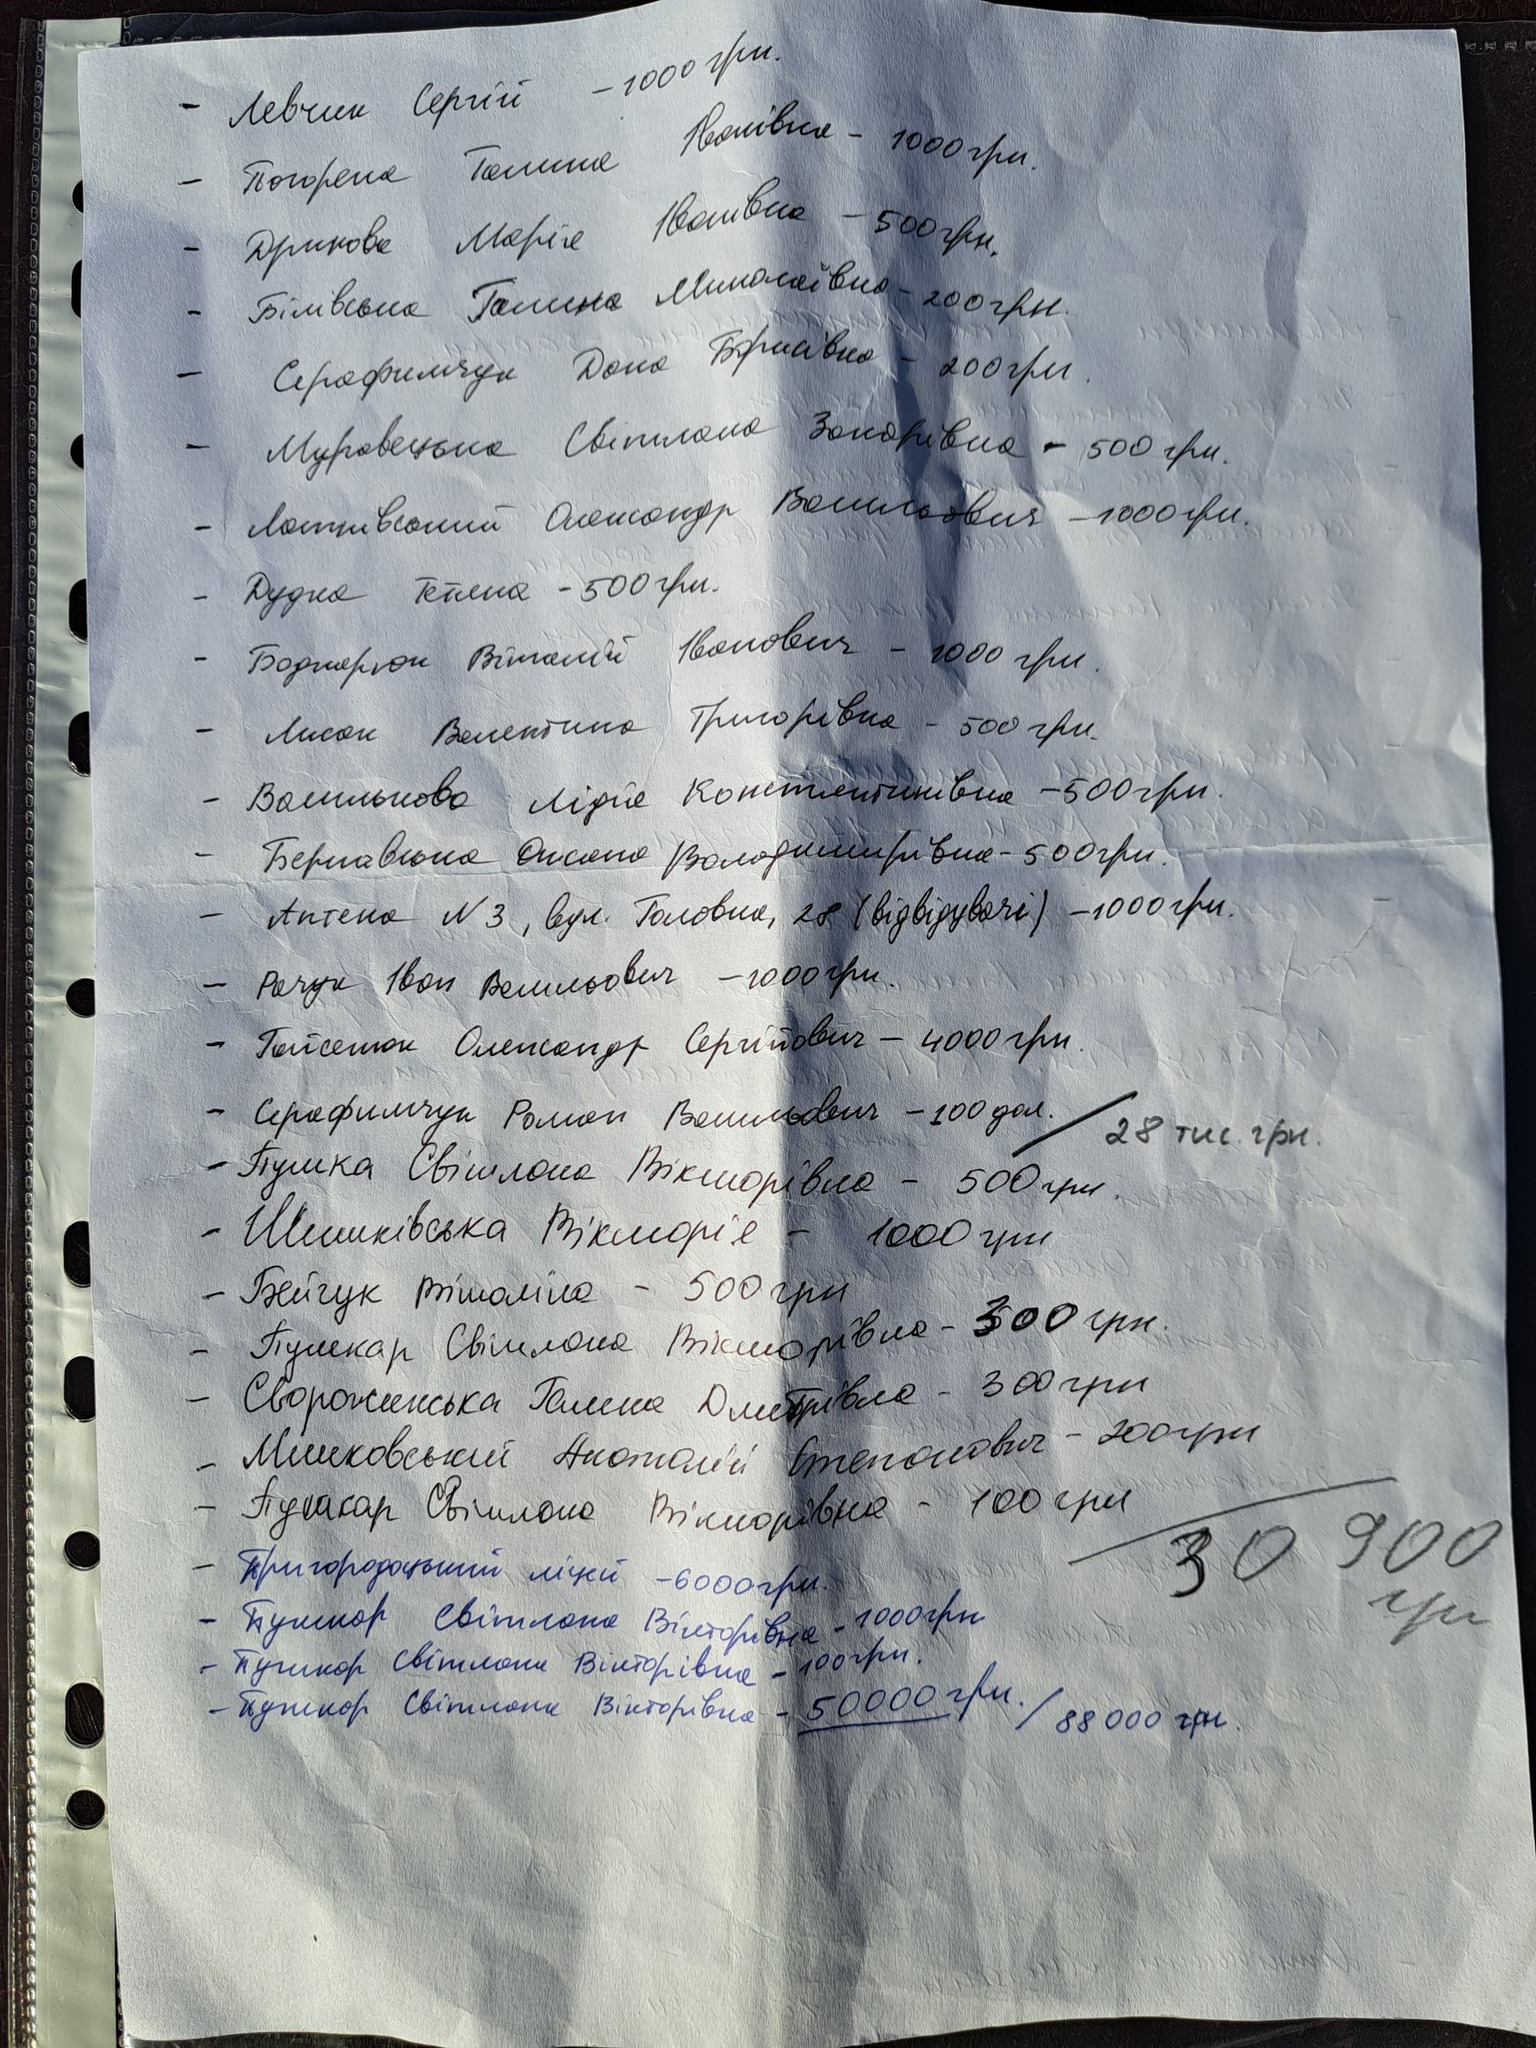 - Левчик Сергій - 1000 грн.
- Погорена Галина Іванівна - 1000 грн.
- Дринова Марія Іванівна - 500 грн.
- Білівська Галина Миколаївна - 200 грн.
- Серафимчук Дана Борисівна - 200 грн.
- Муровецька Світлана Захарівна - 500 грн.
- Олександр Васильович - 1000 грн.
- Дудка Тетяна - 500 грн.
- Боднарюк Віталій Іванович - 1000 грн.
- Лисак Валентина Григорівна - 500 грн.
- Василькова Лідія Константинівна - 500 грн.
- Бернавська Оксана Володимирівна - 500 грн.
- Аптека N 3, вул. Головна, 28 (відвідувачі) - 1000 грн.
- Рачук Іван Васильович - 1000 грн.
- Гайсенюк Олександр Сергійович - 4000 грн.
- Серафимчук Роман Васильович - 100 дол. / 28 тис. грн.
- Пушка Світлана Вікторівна - 500 грн.
- Шишківська Вікторія - 1000 грн
- Бейчук Віталіна - 500 грн
- Пушкар Світлана Вікторівна - 300 грн.
- Сворожинська Галина Дмитрівна - 300 грн
- Мишковський Анатолій Степанович - 200 грн
- Пушкар Світлана Вікторівна - 100 грн
30 900 грн
- Пригородоцький ліцей - 6000 грн.
- Пушкар Світлана Вікторівна - 1000 грн
- Пушкар Світлана Вікторівна - 100 грн.
- Пушкар Світлана Вікторівна - 50000 грн. / 88 000 грн.